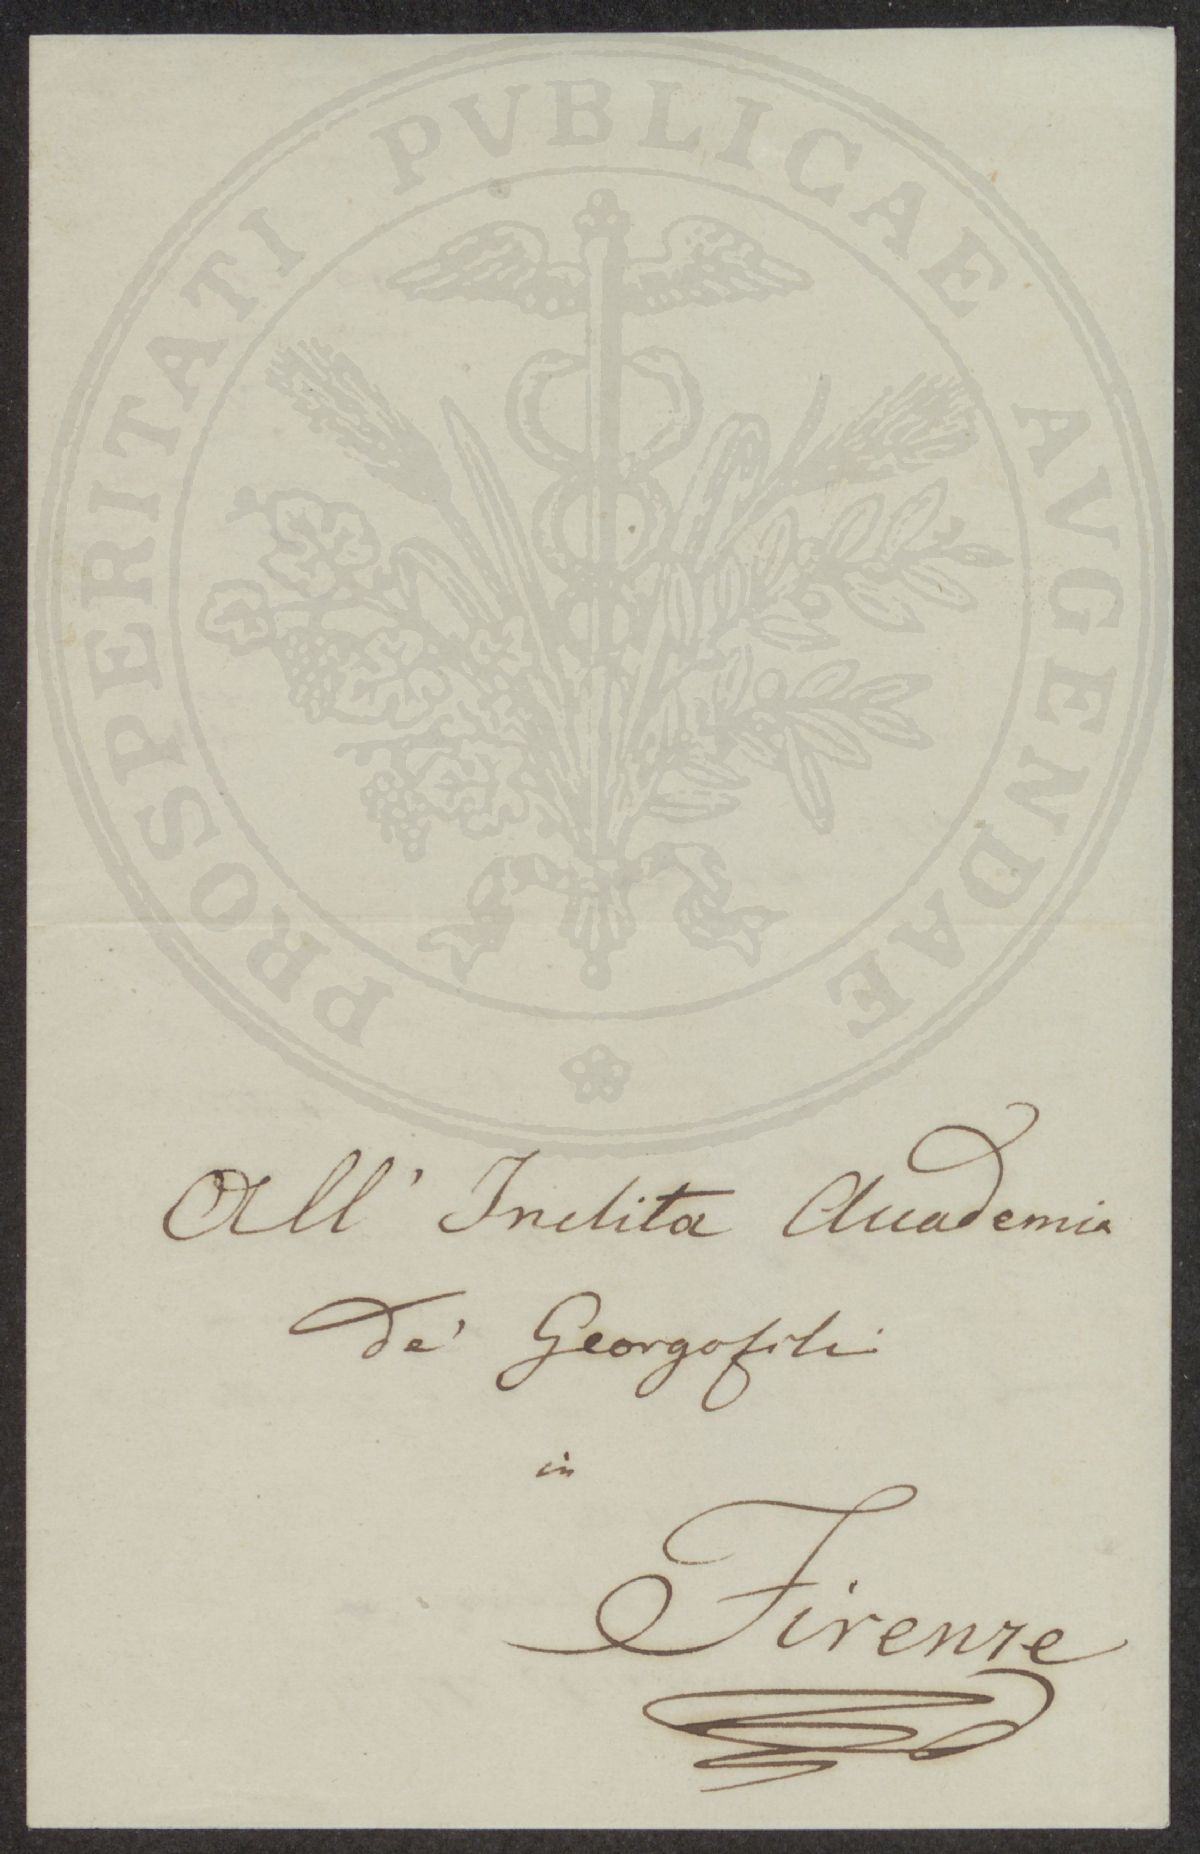 PROSPERITATI PVBLICAE AVGENDAE
All' Inclita Accademia
de' Georgofili
in
Firenze